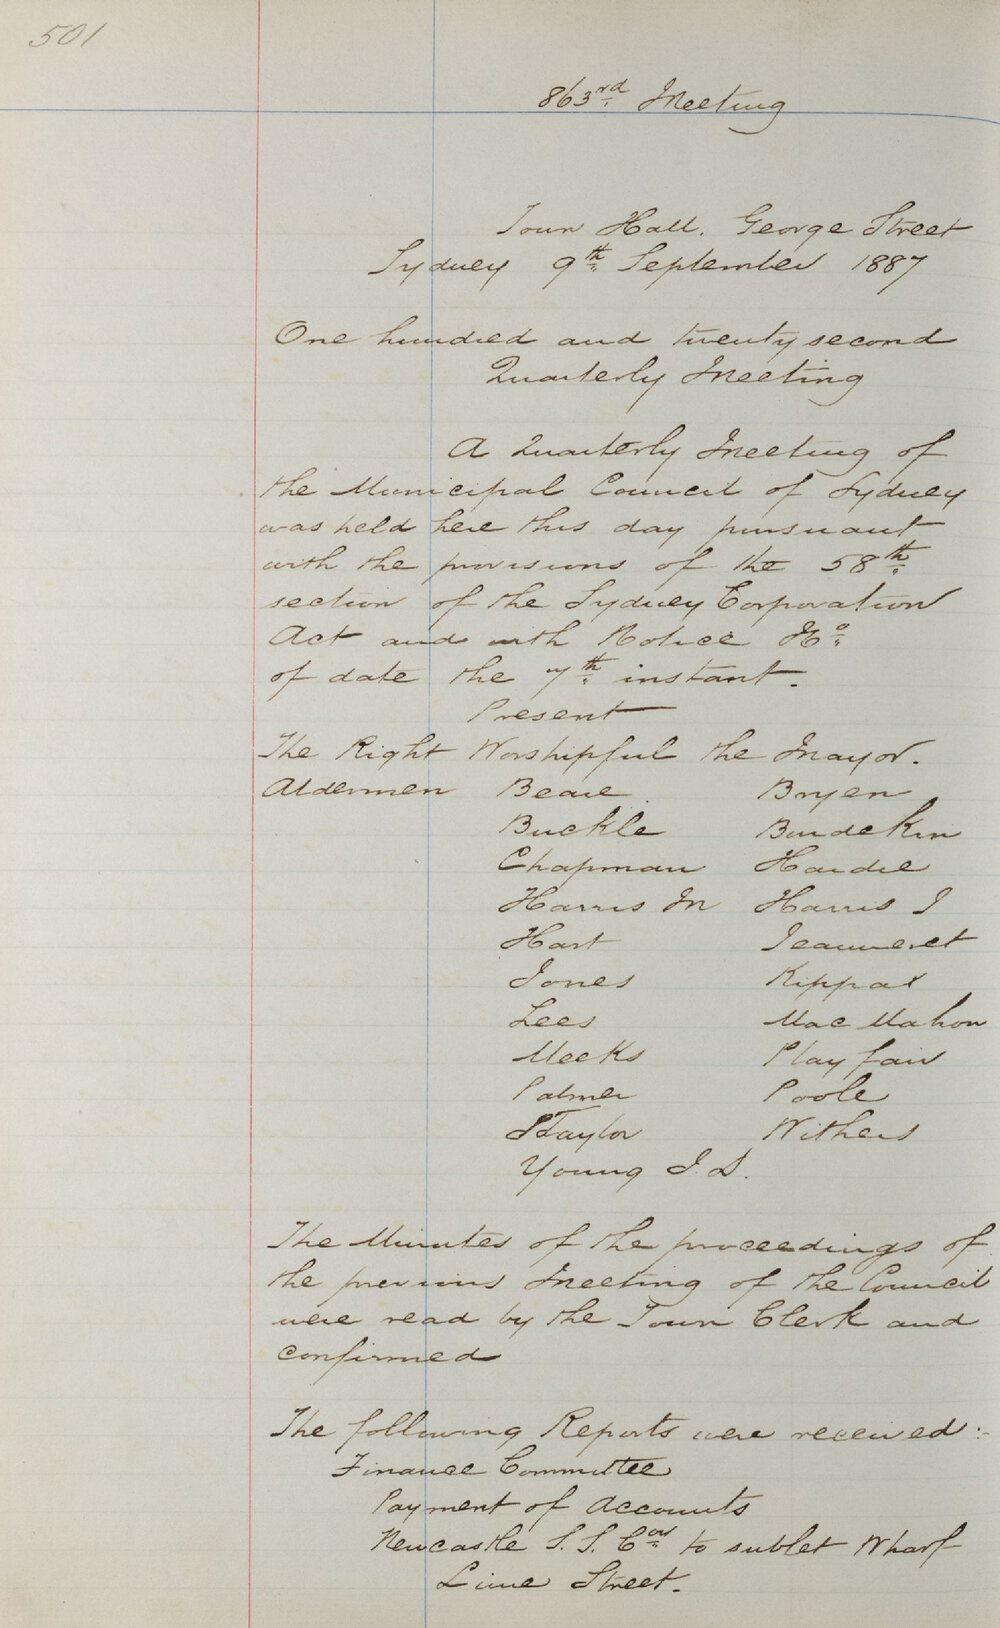 501
863rd Meeting
Town Hall. George Street
Sydney 9th September 1887
One hundred and twenty second
Quarterly Meeting
A Quarterly Meeting of
the Municipal Council of Sydney
was held here this day pursuant
with the provisions of the 58th
section of the Sydney Corporation
Act and with Notice No
of date the 7th instant.
Present
The Right Worshipful the Mayor.
Aldermen Beare Bryen
Buckle Burdekin
Chapman Hardie
Harris M Harris J
Hart Jeanneret
Jones Kippax
Lees MacMahon
Meeks Playfair
Palmer Poole
Taylor Withers
Young J.D.
The Minutes of the proceedings of
the previous Meeting of the Council
were read by the Town Clerk and
confirmed
The following Reports were received:-
Finance Committee
Payment of Accounts
Newcastle S.S. Coy to sublet Wharf
Lime Street.